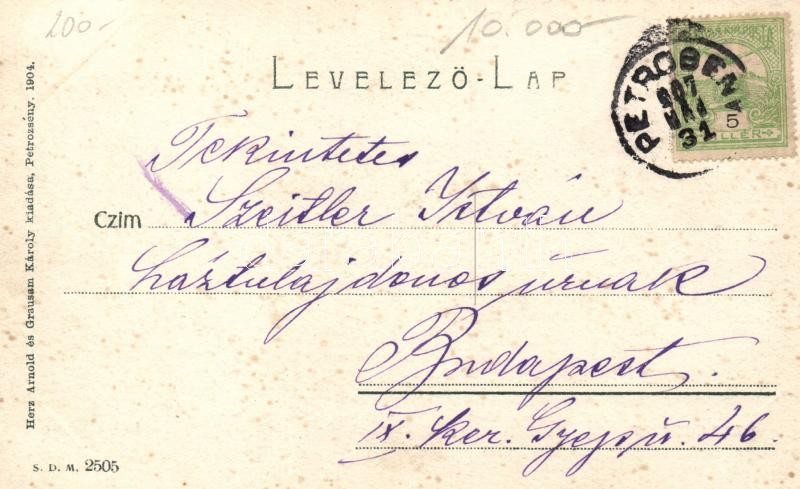 200.-
10.000-
LEVELEZŐ-LAP
PETROSENY
907
MAJ
31
5
Tekintetes
Czim Szeitler István
háztulajdonos úrnak
Budapest.
IX. ker. Gyep ú. 46.
Herz Arnold és Grausam Károly kiadása, Petrozsény. 1904.
S. D. M. 2505